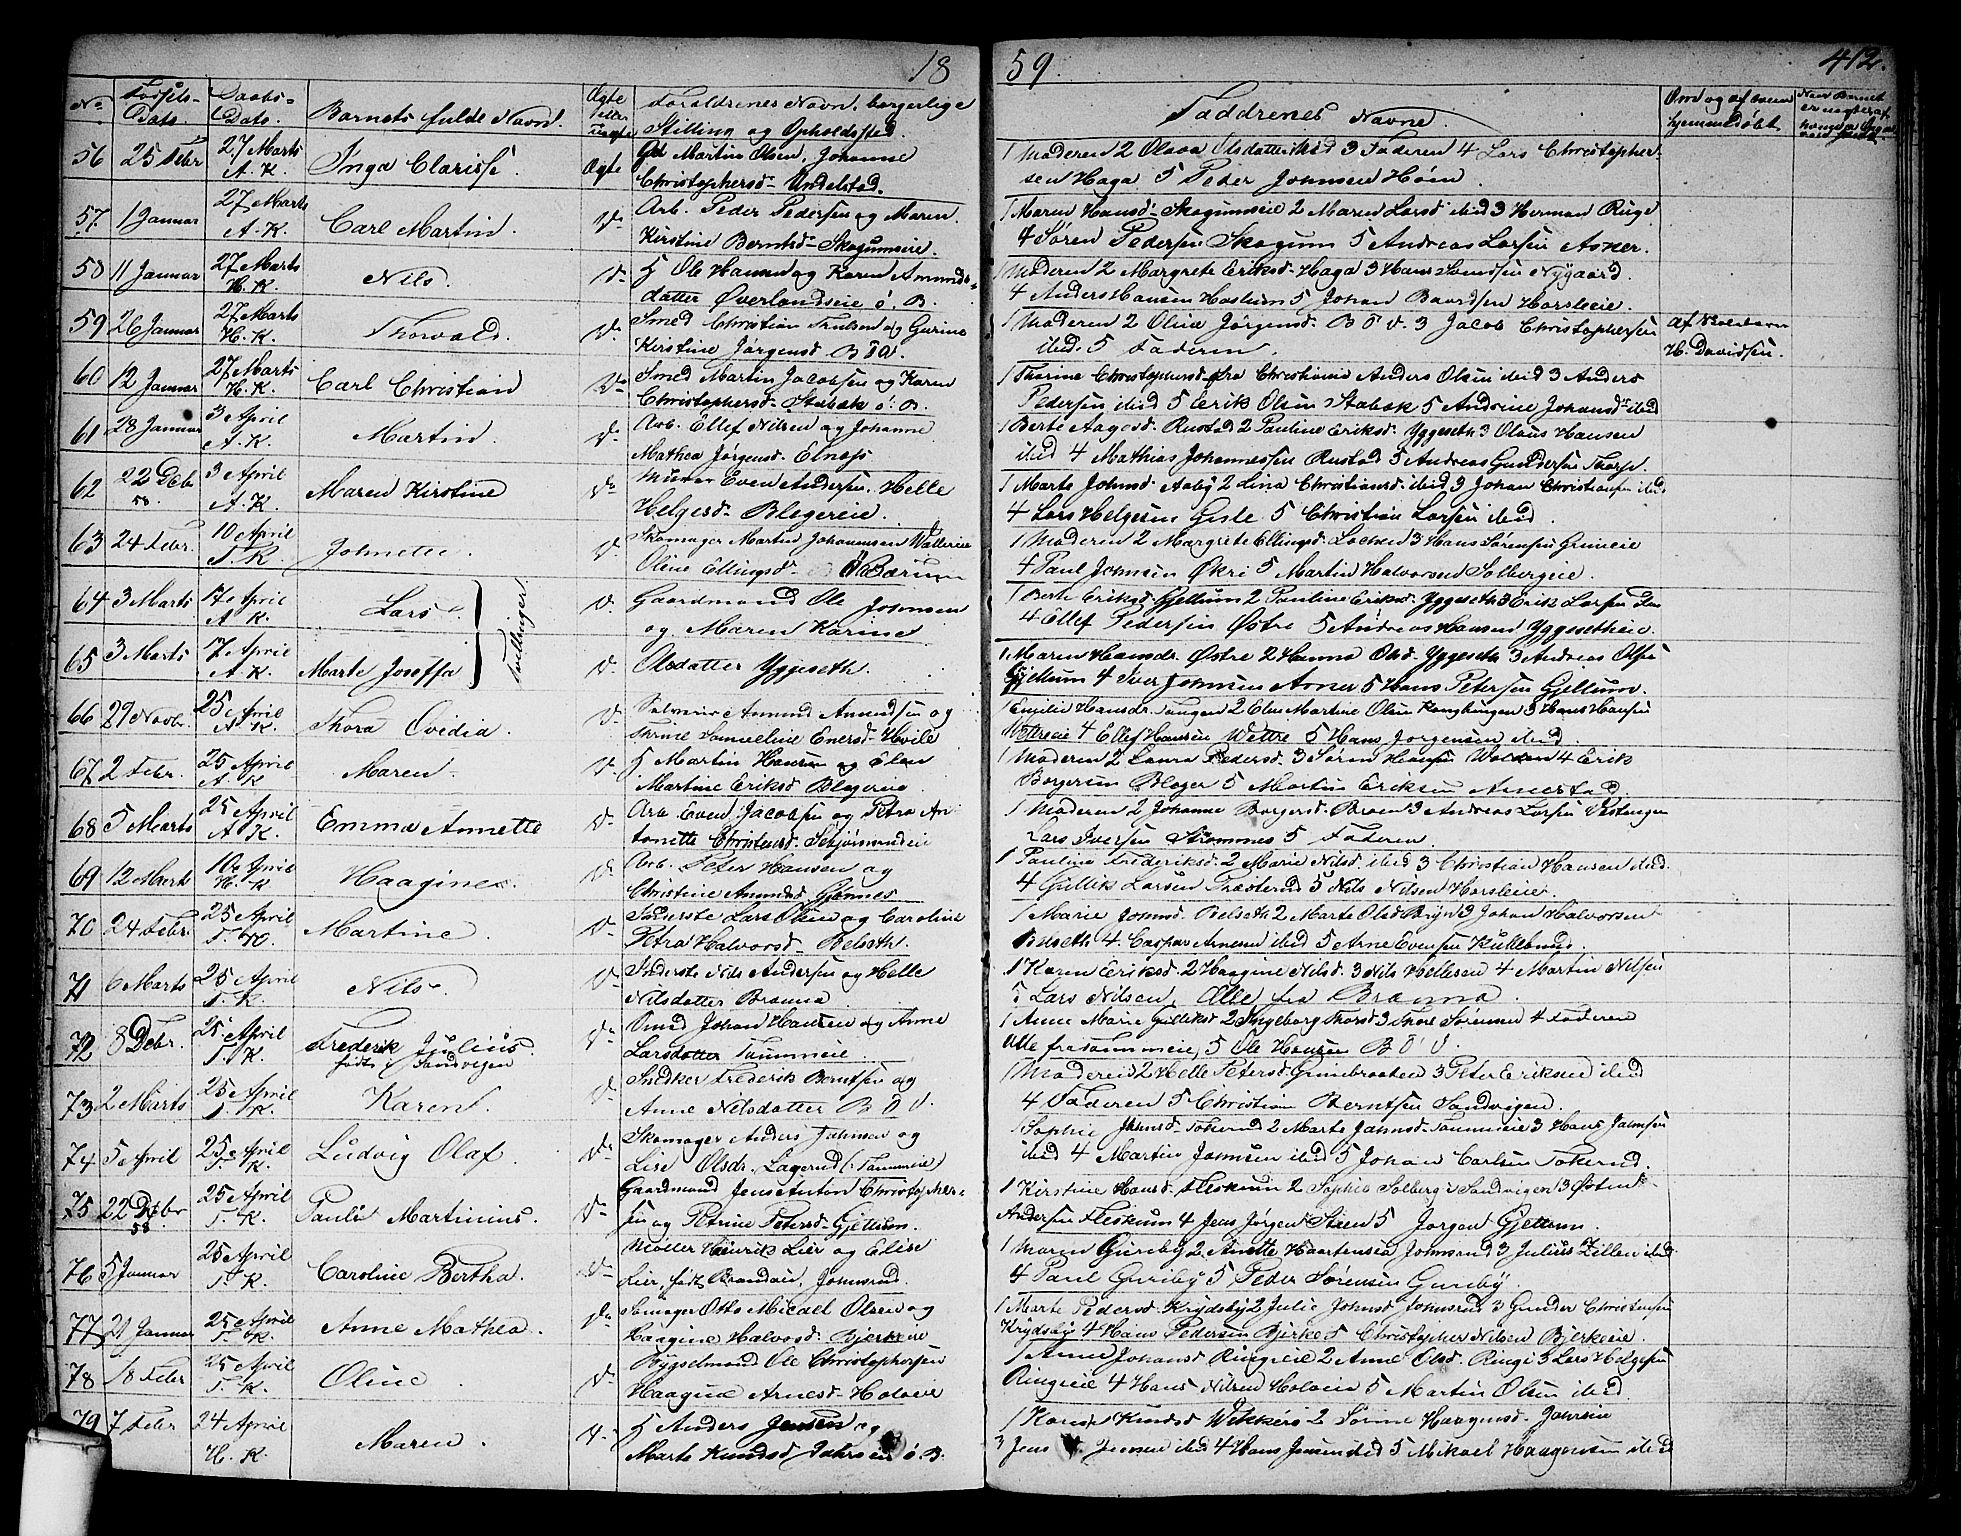 18
59.
412.
No. Fødsels-Dato. Daabs-Dato. Barnets fulde Navn. Ægte eller uægte Forældrenes Navn, borgerlige Stilling og Opholdssted. Faddrenes Navne. Om og af hvem hjemmedøbt
56 25 Febr 27 Marts A. K. Inga Clarisse. Ægte Martin Olsen, Johanne Christophersd. Undelstad.
1 Moderen 2 Olava Olsdatter ibid 3 Faderen 4 Lars Christopher-
sen Haga 5 Peder Johnsen Høin
57. 1 Januar 27 Marts A. K. Carl Martin. Do Arb. Peder Pedersen og Maren Kirstine Berntsd. Skogumseie.
1 Maren Hansd. Skogumseie 2 Maren Larsd ibid 3 Herman Ringe
4 Søren Pedersen Skogum 5 Andreas Larsen Asker.
58 11 Januar 27 Marts H. K. Nils. Do Ole Hansen og Karen Amunds-datter Øverlandseie ø. B.
1 Moderen 2 Margrete Eriksd. Haga 3 Hans Nygaard
4 Anders Hansen Haslum 5 Johan Baardsen Horsleeie.
59 26 Januar 27 Marts H. K. Thorvald. Do Smed Christian og Gurine Kirstine Jørgensd. B ø V.
1 Moderen 2 Oline Jørgensd. B ø V. 3 Jacob Christophersen
ibid. 5 Faderen. af H. Davidsen.
60 12 Januar 27 Marts H. K. Carl Christian Do Smed Martin Jacobsen og Karen Christophersd. Stabæk ø. B.
1 Thorine Christophersd. fra Christiania Anders Olsen ibid 3 Anders
Pedersen ibid 5 Erik Olsen Stabæk 5 Andrine Johansd. ibid
61 28 Januar 3 April A. K. Martin. Do Arb. Ellef Nilsen og Johanne Mathea Jørgensd. Elnæs
1 Berte Aagesd. Rustad 2 Pauline Eriksd. Yggeseth 3 Olaus Hansen
ibid 4 Mathias Johannessen Rustad 5 Andreas Gundersen Thorp.
62 22 Debr 58 3 April A. K. Maren Kirstine Do Murer Even Andersen, Helle Helgesd. Blegereie.
1 Marte Johnsd. Aaby 2 Lina Christiansd. ibid 3 Johan Christiansen ibid
4 Lars Helgesen Gisle 5 Christian Larsen ibid.
63 24 Febr. 10 April T. K. Johnette. Do Skomager Martin Johannessen Oline Ellingsd. Ø Bærum
1 Moderen 2 Margrete Ellingsd. Løkken 3 Hans Sørensen Grineeie
4 Paul Johnsen Økri 5 Martin Halvorsen Solbergeie.
64 3 Marts 17 April A K. Lars Do Gaardmand Ole Johnsen og Maren Karine
1 Berte Eriksd. Gjellum 2 Pauline Eriksd. Yggeseth 3 Erik Larsen
4 Ellef Pedersen Østre 5 Andreas Hansen Yggesetheie.
Tvillinger!
65 3 Marts 17 April A. K. Marte Joseffa Do Olsdatter Yggeseth.
1 Maren Hansdr. Østre 2 Hanna Olsd. Yggeseth 3 Andreas Olsen
Gjellum 4 Iver Johnsen Asker 5 Hans Petersen Gjellum.
66 29 Novbr. 25 April A. K. Thora Ovidia. Do Amund Amundsen og Thrine Samueline Enersd. Hvile
1 Emilie Hansdr. Tangen 2 Else Martine Olsen Konghungen 3 Hans Hansen
Wettreeie 4 Ellef Hansen Wettre 5 Hans Jørgensen ibid.
67 2 Febr. 25 April A K Maren. Do Martin Hansen og Elen Martine Eriksd. Blegereie
1 Moderen 2 Laura Pedersd. 3 Søren Hansen 4 Erik
Borgersen Bleger 5 Martin Eriksen Arnestad.
68 5 Marts 25 April A K. Emma Annette Do Arb. Even Jacobsen og Petra An-tonette Christensd.
1 Moderen 2 Johanne Borgersd. Broen 3 Andreas Larsen
Lars Iversen Strømmes 5 Faderen.
69 12 Marts 10 April H. K Haagine. Do Arb. Peter Hansen og Christine Amundsd. Gjønnes
1 Pauline Frederiksd. 2 Marie Nilsd. ibid 3 Christian Hansen ibid.
4 Gullik Larsen 5 Nils Nilsen Horsleeie.
70 24 Febr. 25 April T. K. Martine. Do Inderste Lars Olsen og Caroline Petra Halvorsd. Belseth.
1 Marie Johnsd. Belseth 2 Marte Olsd. Bryn 3 Johan Halvorsen
Belseth 4. Caspar Arnesen ibid 5 Arne Evensen Kullebunds.
71 6 Marts 25 April T. K. Nils. Do Inderste Nils Andersen og Helle Nilsdatter Bramna.
1 Karen Eriksd. 2 Haagine Nilsd. 3 Nils Hellesen 4 Martin Nilsen
5 Lars Nilsen, Alle fra Bramna.
72 8 Febr. 25 April T. K. Frederik Julius. født i Sandvigen Do Smed Johan Hansen og Anne Larsdatter Tanumeie.
1 Anne Marie Gulliksd. 2 Ingeborg Thorsd. 3 Thore Sørensen 4 Faderen
Alle fra Tanumeie, 5 Ole Hansen B ø V.
73 2 Marts 25 April T. K. Karen Do Snedker Frederik Berntsen og Anne Nilsdatter B Ø V.
1 Moderen 2 Helle Petersd. Grinebraaten 3 Peter Eriksen ibid
4 Faderen 5 Christian Berntsen Sandvigen.
74 5 April 25 April T. K. Ludvig Olaf. Do Skomager Anders Johnsen og Lise Olsdr. Lagerud (Tanumeie)
1 Sophie Johnsd. Tokerud 2 Marte Johnsd. Tanumeie 3 Hans Johnsen
ibid 4 Martin Johnsen ibid 5 Johan Carlsen Tokerud.
75 22 Debr 58 25 April T. K. Pauli Martinius. Do Gaardmand Jens Anton Christopher-sen og Petrine Petersd. Gjellum.
1 Kirstine Hansd. Fleskum 2 Sophie Solberg i Sandvigen 3 Østen
Andersen Fleskum 4 Jens Jørgen Steen 5 Jørgen Gjellum.
76 5 Januar 25 April T. K. Caroline Bertha. Do Møller Henrik Lier og Elise Lier, født Brandau, Johnsrud.
1 Maren Gureby 2. Anette Johnsrud 3 Julius Zillen ibid
4 Paul Gureby 5 Peder Sørensen Gureby.
77 21 Januar 25 April T. K. Anne Mathea. Do Otto Micael Olsen og Haagine Halvorsd. Bjerkeeie
1 Marte Pedersd. Krydsby 2 Julie Johnsd. Johnsrud 3 Gunder Christensen
Krydsby 4 Hans Pedersen Bjerke 5 Christopher Nilsen Bjerkeeie.
78 18 Febr 25 April T. K. Oline Do Bygselmand Ole Christophersen Haagine Arnesd. Holoeie
1 Anne Johansd. Ringieie 2 Anne Olsd. Ringi 3 Lars Helgesen
Ringieie 4 Hans Nilsen Holoeie 5 Martin Olsen ibid.
79 7 Febr 24 April H. K. Maren. Do Anders Jensen og Marte Knudsd. ø. B.
1 Karen Knudsd. 2 Sørine Haagensd.
3 Jens Jensen ibid 4 Hans Jensen ibid 5 Mikael Haagensen ibid